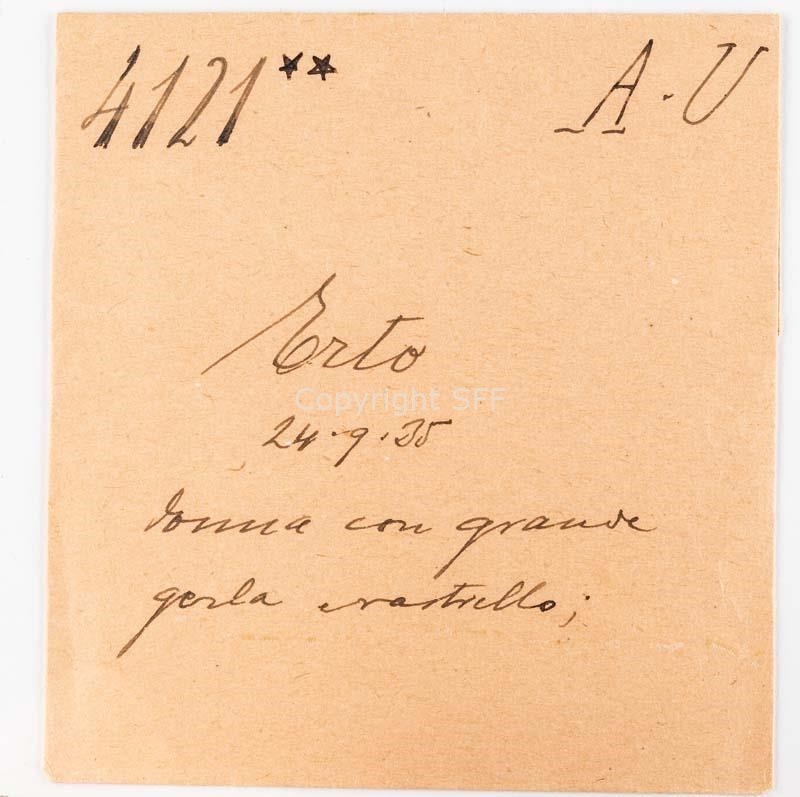 4121** A. U
Erto
Copyright SFF
24.9.35
donna con grande
gerla e rastrello;